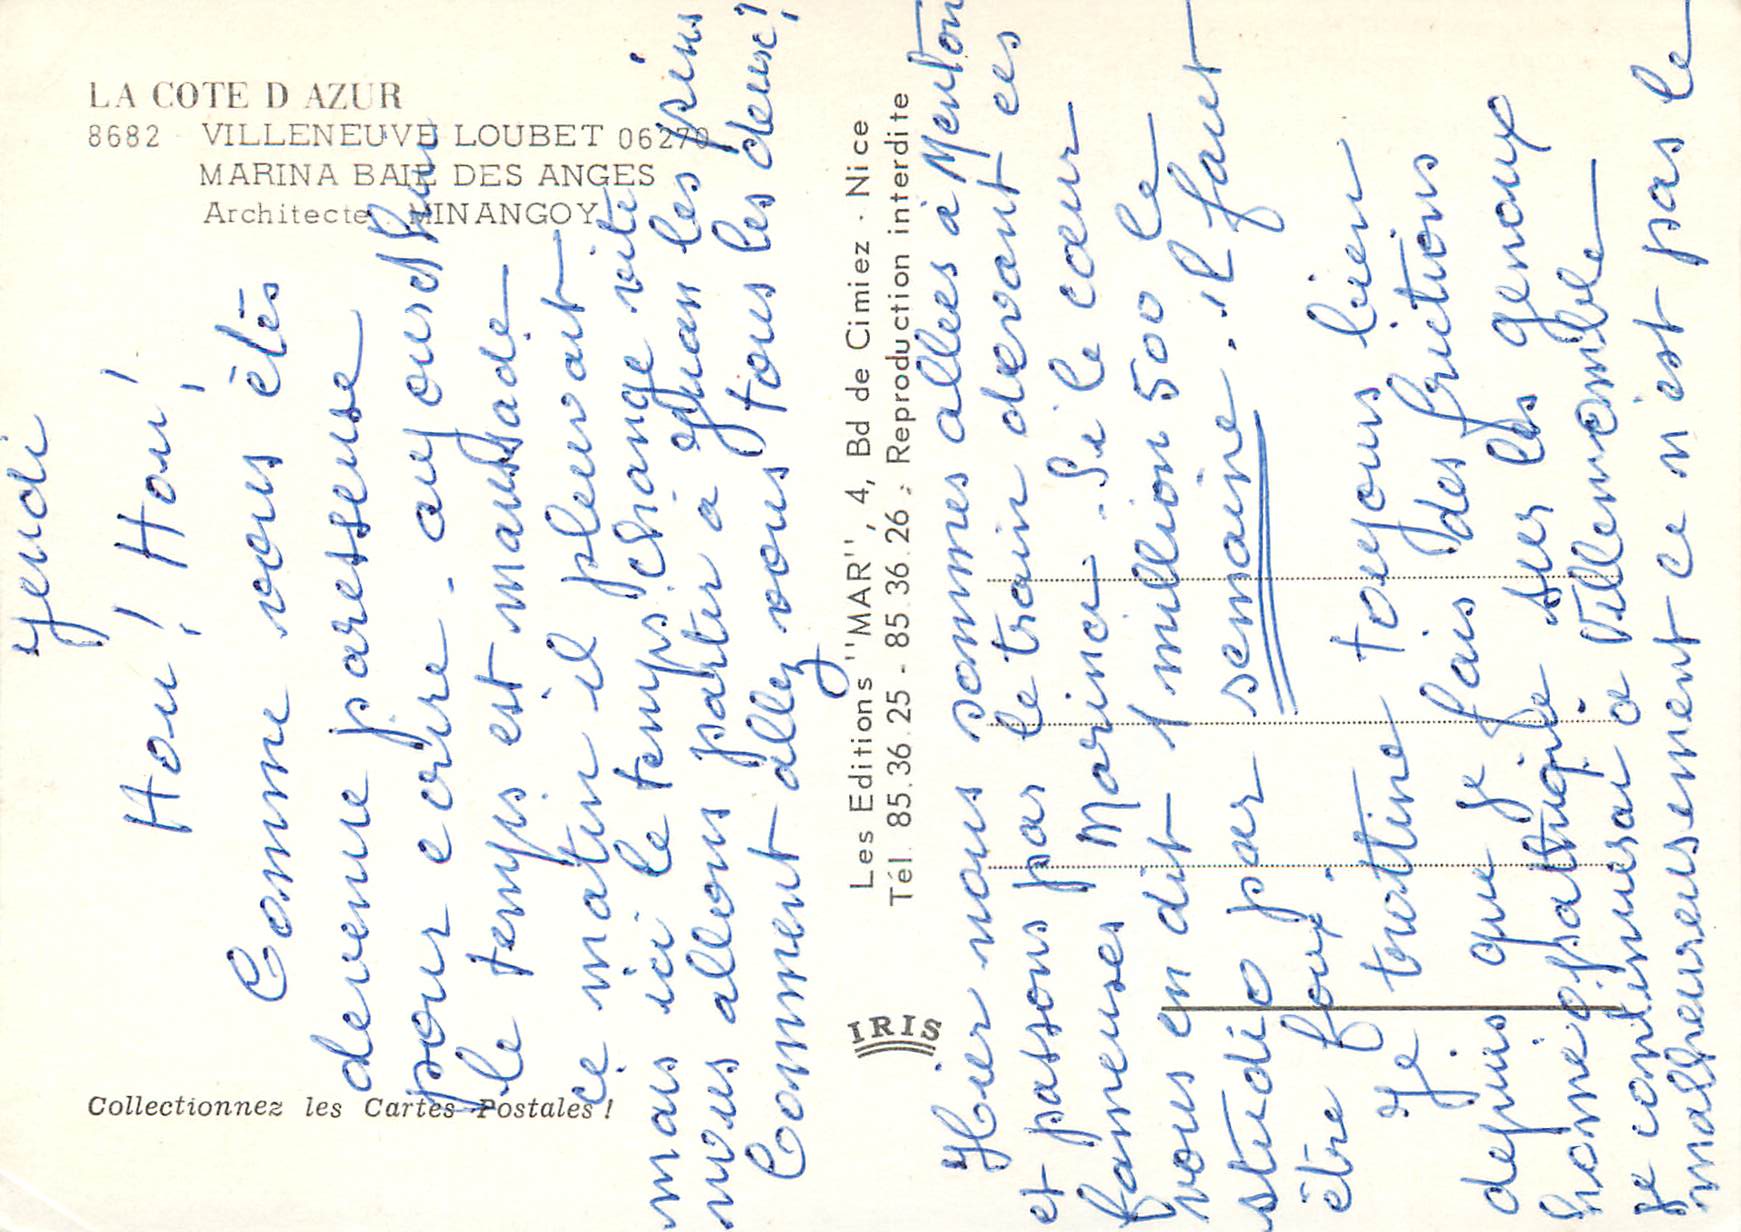 LA COTE D AZUR
8682 VILLENEUVE LOUBET 06270
MARINA BAIE DES ANGES
Architecte : MINANGOY
Collectionnez les Cartes Postales !
Les Editions "MAR", 4, Bd de Cimiez - Nice
Tél. 85.36.25 - 85.36.26 - Reproduction interdite
IRIS
Jeudi
Hou ! Hou ! !
Comme vous êtes
devenue paresseuse
pour ecrire - aujourd'hui
le temps est maussade
ce matin il pleuvait
mais ici le temps change vite
nous allons partir à
Comment allez vous tous les deux ?
Hier nous sommes allées à Menton
et passons par le train devant ces
fameuses Marina. Si le cœur
vous en dit 1 million 500 le
studio par semaine. il faut
être foux.
Je trottine toujours bien
depuis que je fais des frictions
homéopathique sur les genoux
je continuerai à Villemomble
malheureusement ce n'est pas le